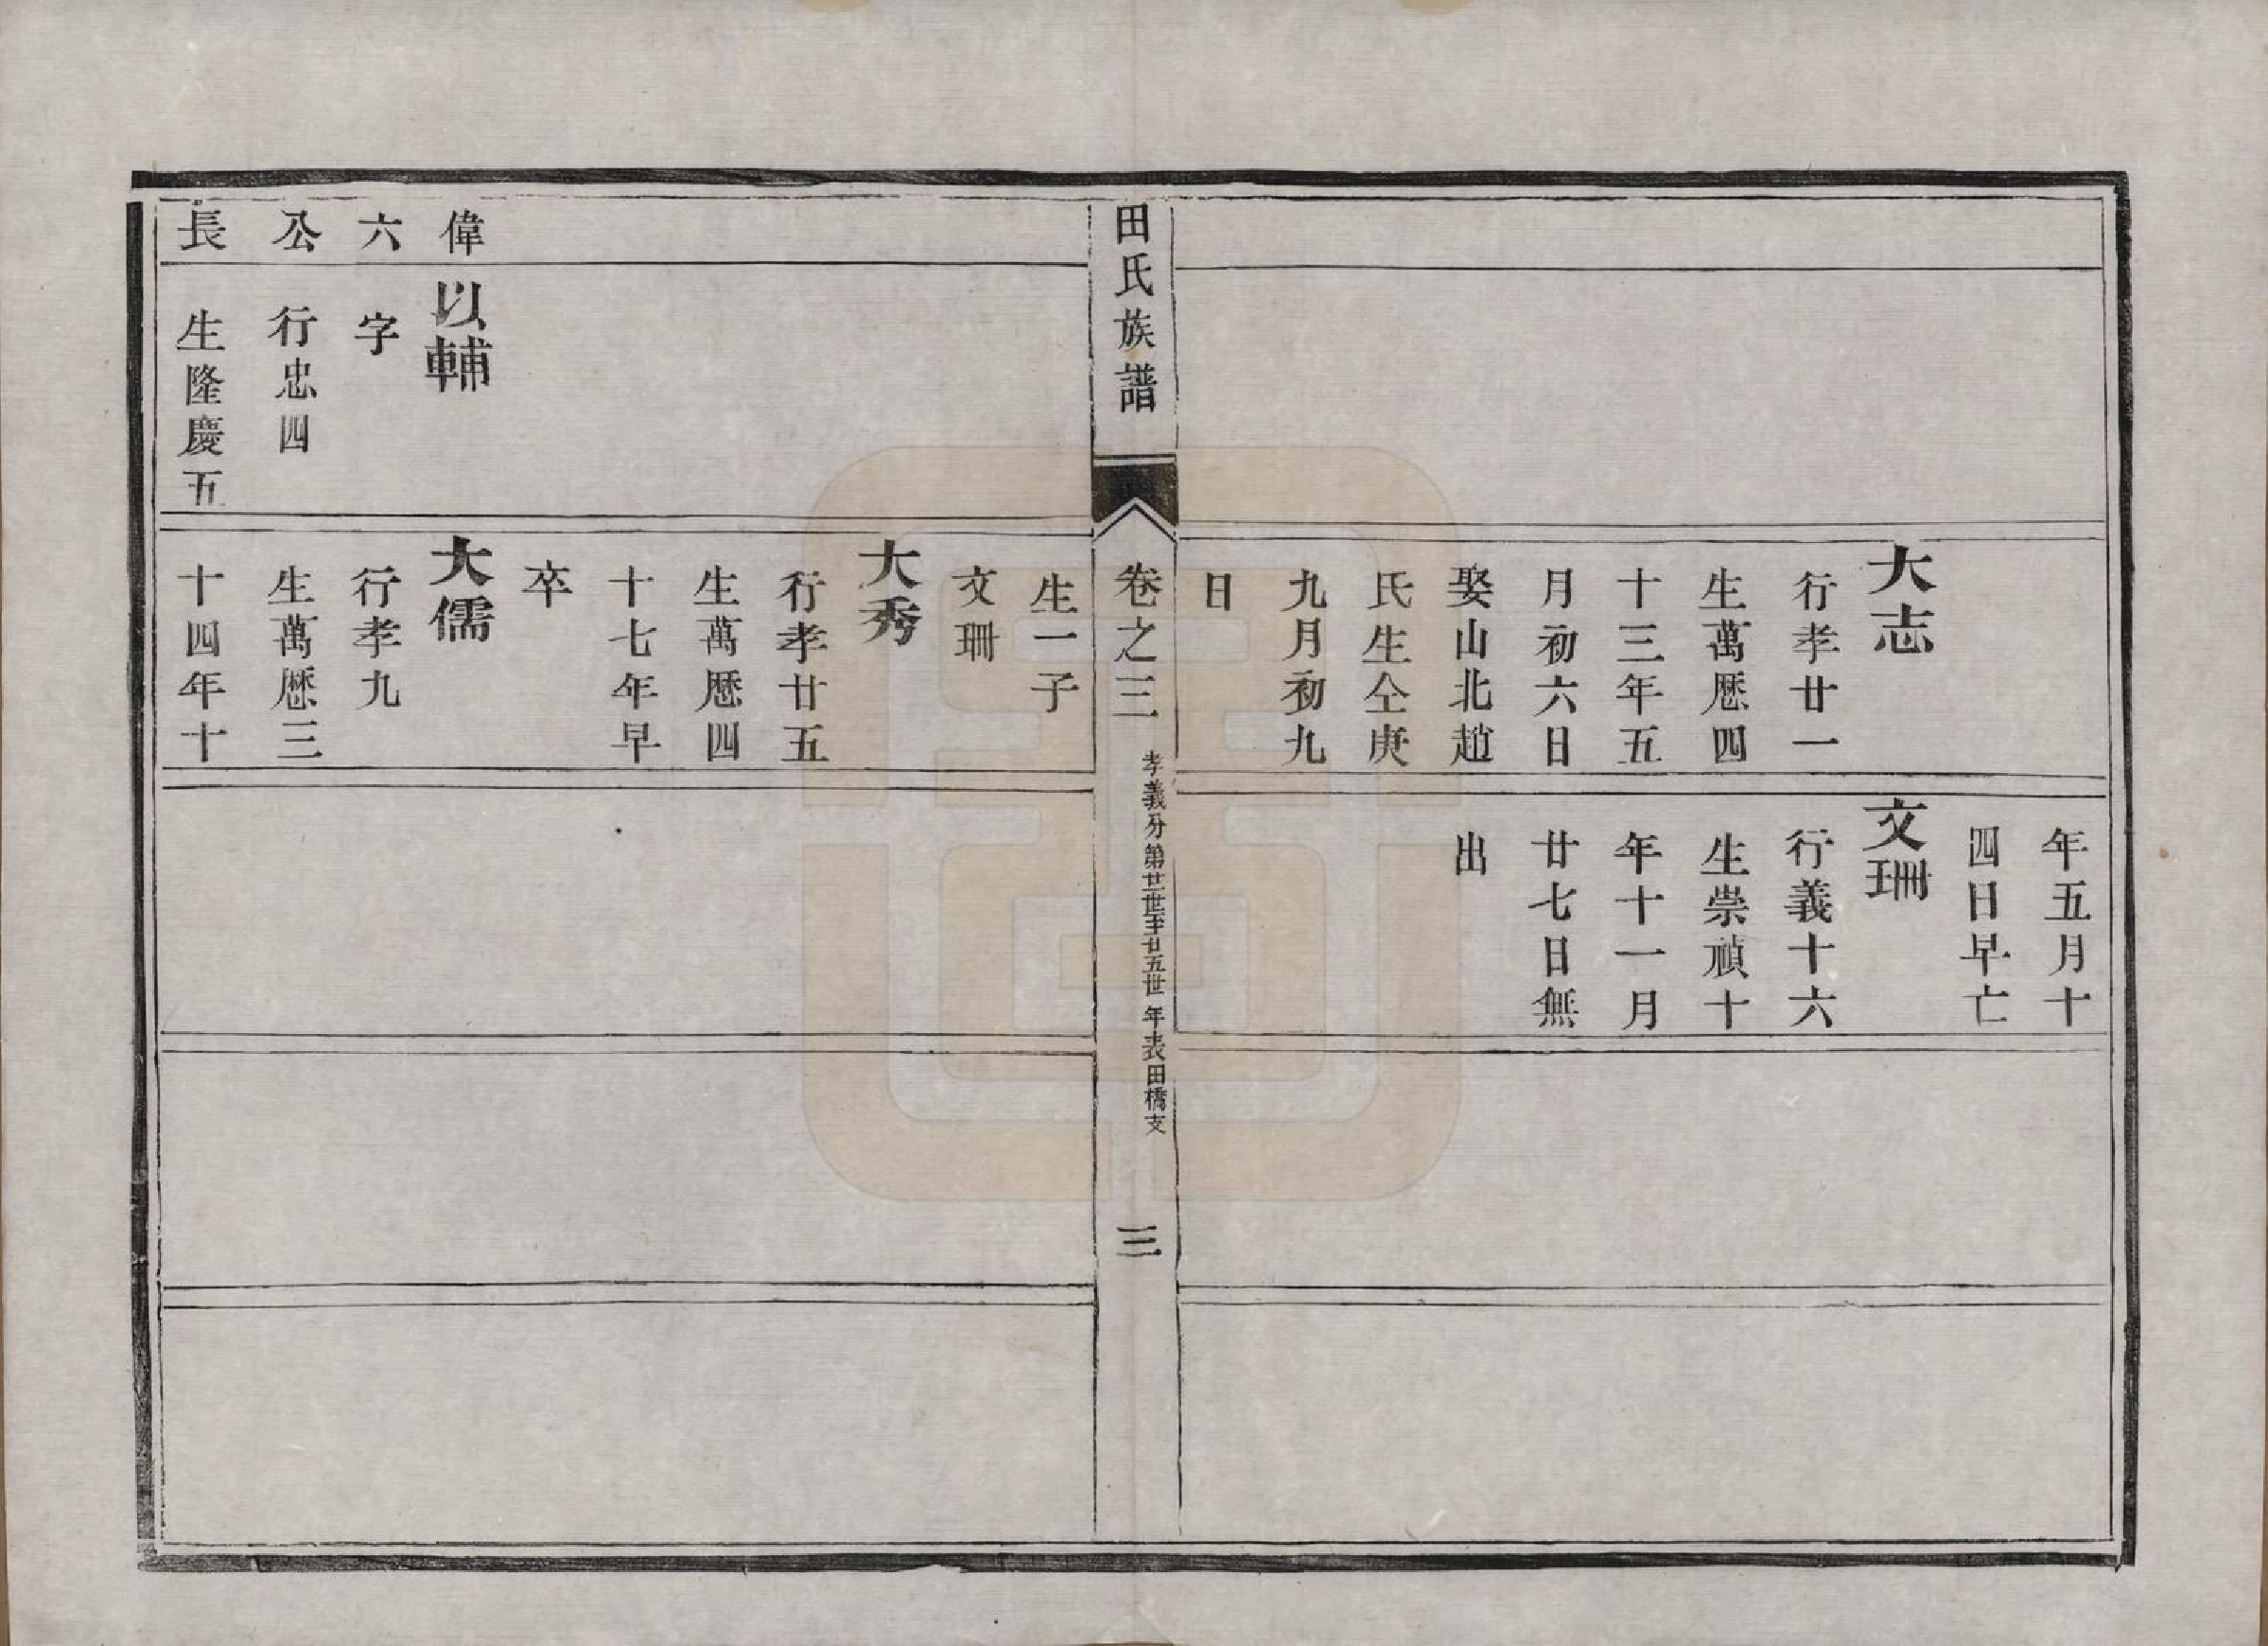 年五月十
四日早亡
文珊
行義十六
生崇禎十
年十一月
廿七日無
出
大志
行孝廿一
生萬厯四
十三年五
月初六日
娶山北趙
氏生仝庚
九月初九
日
田氏族譜
卷之三
孝義分第廿一世至廿五世年表田橋支
三
生一子
文珊
大秀
行孝廿五
生萬厯四
十七年早
卒
偉
六
公
長
以輔
字
行忠四
生隆慶五
大儒
行孝九
生萬厯三
十四年十